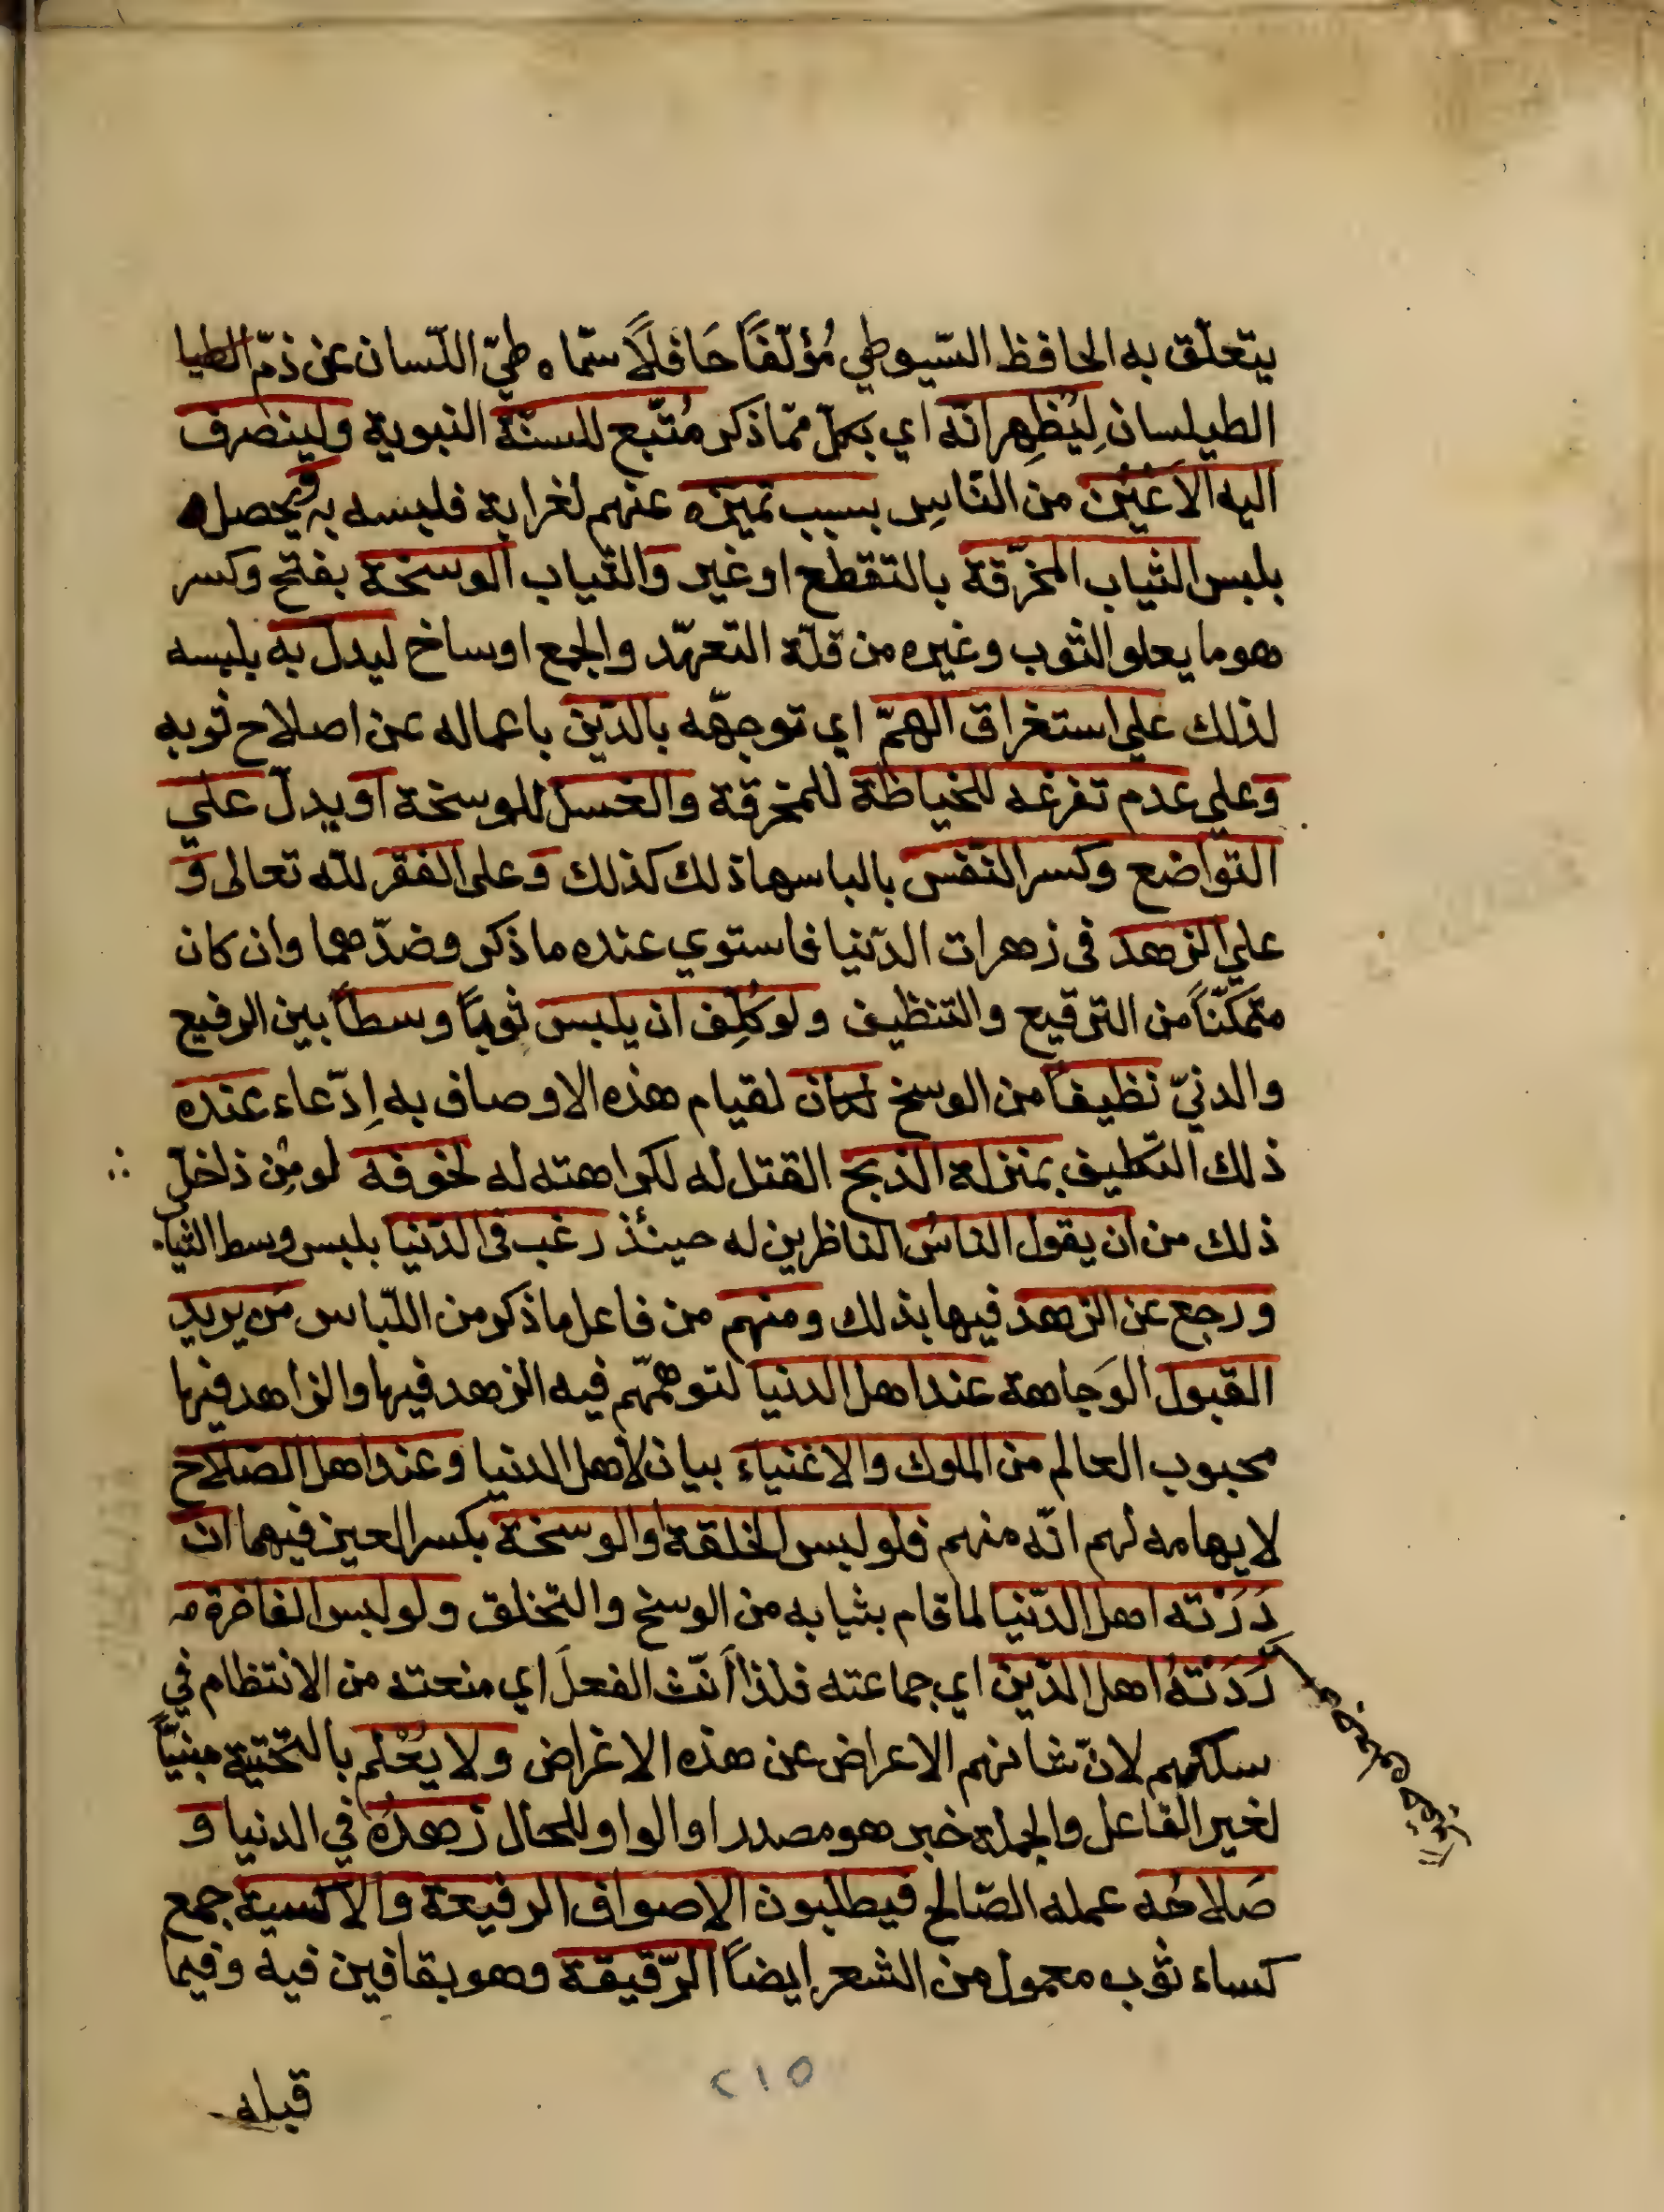 يتعلّق به الحافظ السّيوطي مُؤلّفًا حَافلًا سمّاه طيّ اللّسان عن ذمّ الطيا
الطيلسان لِيُظهِر انّه اي بكلّ ممّا ذكر مُتّبع للسنّة النبوية ولينصرف
اليه الاَعْيُن من النّاسِ بسبب تميّزه عنهم لغرابة فلبسه به ويحصل
بلبس الثياب المخرّقة بالتقطع او غير والثياب الوسخة بفتح وكسر
هو ما يعلو الثوب وغيره من قلّة التعهّد والجمع اوساخ ليدلّ به بلبسه
لذلك علي استغراق الهمّ اي توجهّه بالدّين باعماله عن اصلاح ثوبه
وعلي عدم تفرغه للخياطة للمخرقة والغسل للوسخة او يدلّ علي
التواضع وكسر النّفس بالباسها ذلك كذلك وعلى الفقر للّه تعالى و
علي الزهد في زهرات الدّنيا فاستوي عنده ما ذكر وضدّهما وان كان
متمكّنًا من الترقيع والتنظيف ولو كُلِّف ان يلبس ثوبًا وسطًا بين الرفيع
والدنيّ نظيفًا من الوسخ لكان لقيام هذه الاوصاف به اِدّعاء عنده
ذلك التكليف بمنزلة الذبح القتل له لكراهته له لخوفه لومٌ من داخل
ذلك من ان يقول الناسُ الناظرين له حينئذ رغب في الدّنيا بلبس وسط الثياب
ورجع عن الزهد فيها بذلك ومنهم من فاعل ما ذكر من اللّباس مَن يريد
القبول الوَجاهة عند اهل الدنيا لتوهمّهم فيه الزهد فيها والزاهد فيها
محبوب العالم من الملوك والاغنياء بيان لاهل الدنيا وعند اهل الصّلاح
لايهامه لهم انّه منهم فلو لبس الخلقة او الوسخة بكسر العين فيهما ان
دَرَتْه اهل الدّنيا لما قام بثيابه من الوسخ والتخلق ولو لبس الفاخرة
رَدَتْهُ اهل الدّين اي جماعته فلذا اَنّث الفعلَ اي منعته من الانتظام في
سلكهم لانّ شانهم الاعراض عن هذه الاغراض ولا يُعْلم بالتّحتية مبنيًّا
لغير الفاعل والجملة خبر هو مصدر او الواو للحال زهدُه في الدنيا و
صَلاحُه عمله الصّالح فيطلبون الاصواف الرفيعة والاكسية جمع
كساء ثوب معمول من الشعر ايضًا الرّقيقة وهو بقافين فيه وفيما
قبله
٢١٥